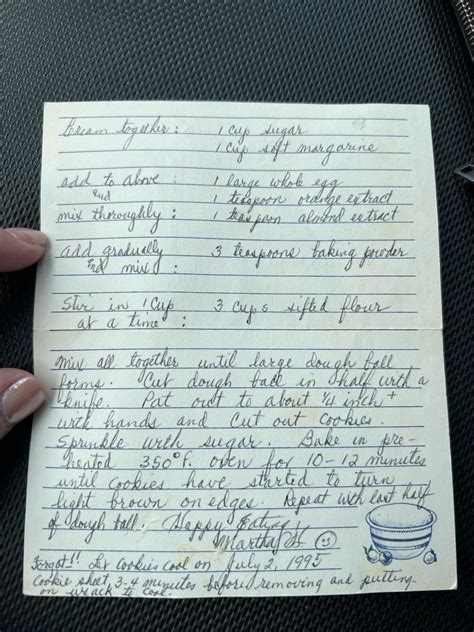 Cream together : 1 cup sugar
1 cup soft margarine
add to above : 1 large whole egg
and 1 teaspoon orange extract
mix thoroughly : 1 teaspoon almond extract
add gradually 3 teaspoons baking powder
and mix :
Stir in 1 Cup 3 cups sifted flour
at a time :
Mix all together until large dough ball
forms. Cut dough ball in half with a
knife. Pat out to about 1/4 inch +
with hands and cut out cookies.
Sprinkle with sugar. Bake in pre-
heated 350° F. oven for 10-12 minutes
until cookies have started to turn
light brown on edges. Repeat with last half
of dough ball. Happy Eating!
Martha
July 2, 1995
Forgot!! Let cookies cool on
cookie sheet, 3-4 minutes before removing and putting
on rack to cool.